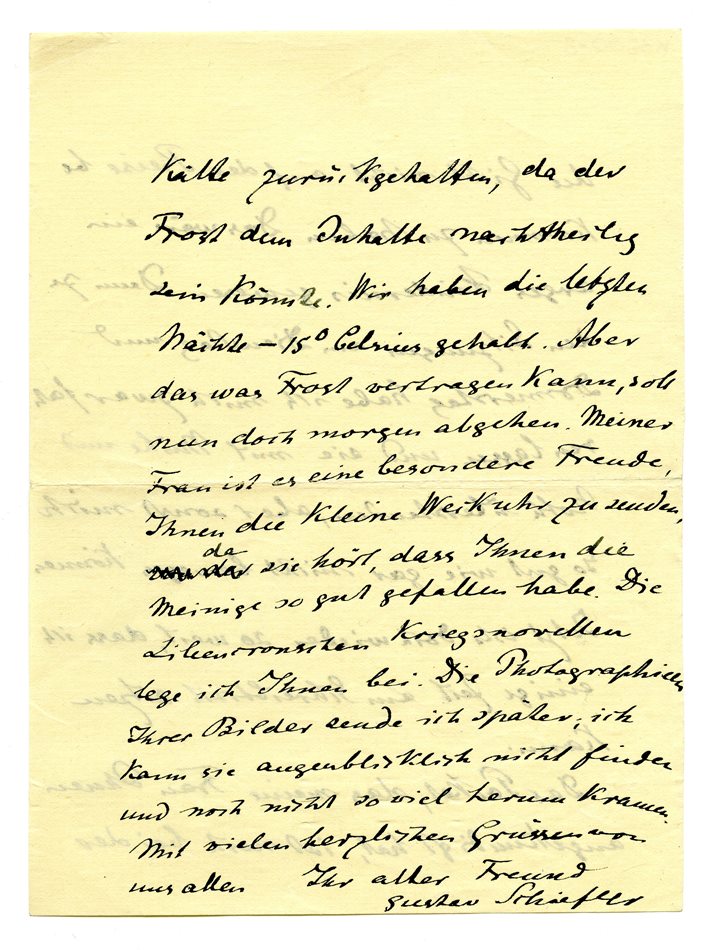 Kälte zurückgehalten, da der
Frost dem Inhalte nachtheilig
sein könnte. Wir haben die letzten
Nächte – 15° Celsius gehabt. Aber
das was Frost vertragen kann, soll
nun doch morgen abgehen. Meiner
Frau ist es eine besondere Freude,
Ihnen die kleine Weckuhr zu senden,
da sie hört, dass Ihnen die
Meinige so gut gefallen habe. Die
Liliencronschen Kriegsnovellen
lege ich Ihnen bei. Die Photographieen
Ihrer Bilder sende ich später; ich
kann sie augenblicklich nicht finden
und noch nicht so viel herum kramen.
Mit vielen herzlichen Grüssen von
uns allen Ihr alter Freund
Gustav Schiefler